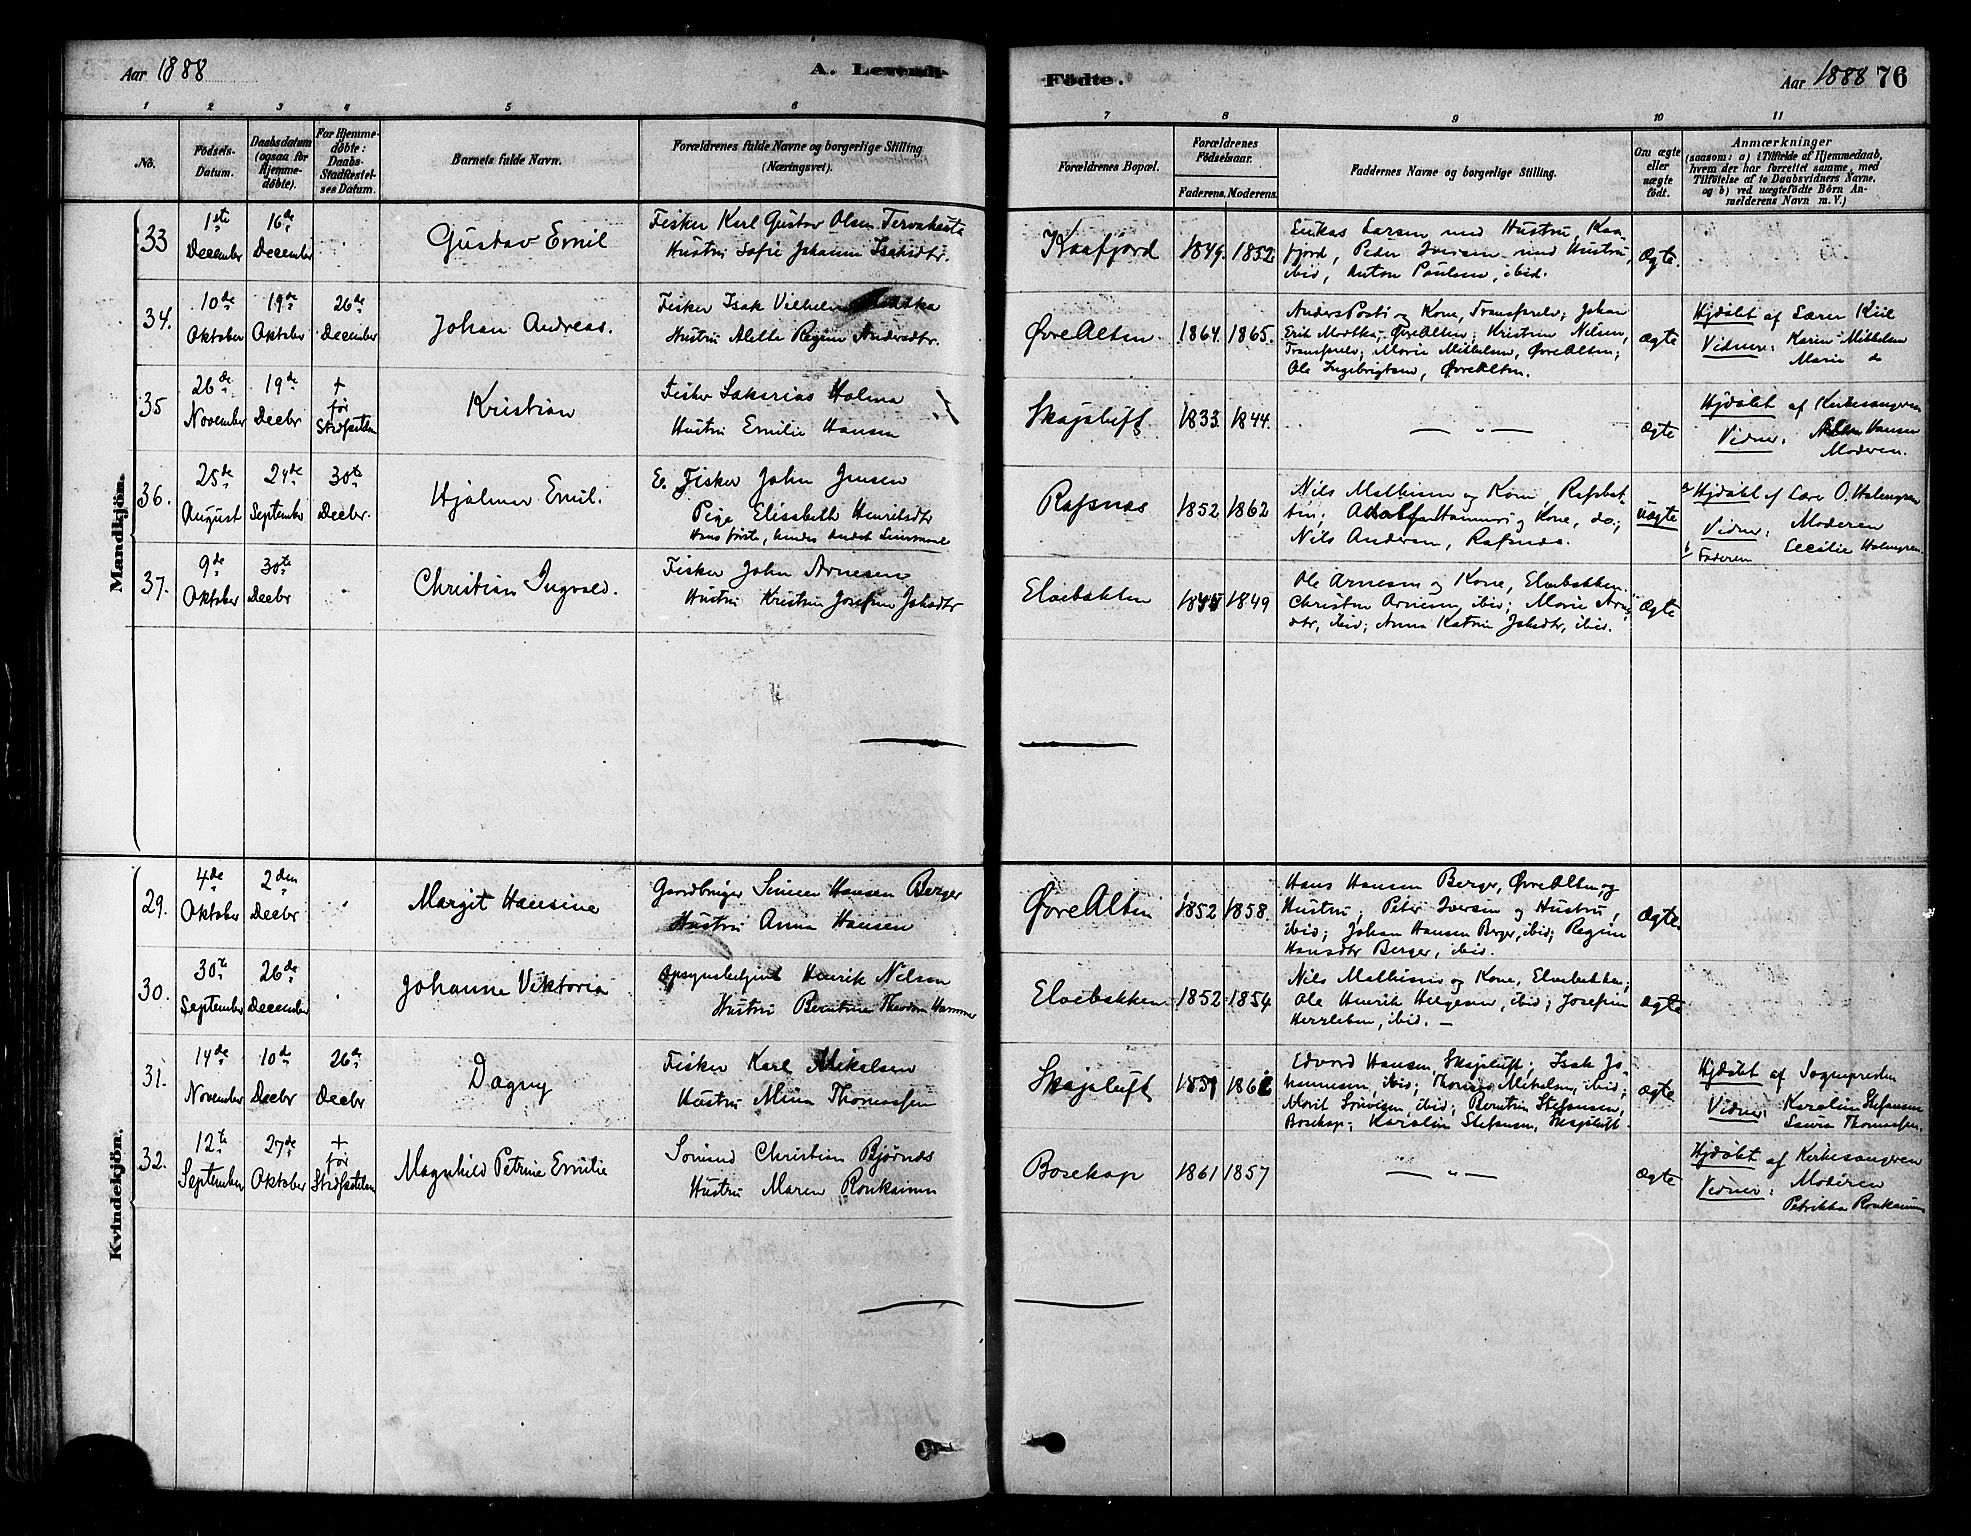 Aar 1888 A. Levende
Födte. Aar 1888 76
1 2 3 4 5 6 7 8 9 10 11
No.
Födsels-Datum.
Daabsdatum (ogsaa for Hjemme-döbte).
For Hjemme-döbte: Daabs-Stadfæstel-ses Datum.
Barnets fulde Navn.
Forældrenes fulde Navne og borgerlige Stilling (Næringsvei).
Forældrenes Bopæl.
Forældrenes Födselsaar.
Faderens. Moderens.
Faddernes Navne og borgerlige Stilling.
Om ægte eller uægte födt.
Anmærkninger
(saasom: a) i Tilfælde af Hjemmedaab,
hvem der har forrettet samme, med
Tilföielse af to Daabsvidners Navne,
og b) ved uægtefödte Börn An-
melderens Navn m. V.)
Mandkjön.
33 1ste December 16de December Gustav Emil
Fisker Karl Gustav Olsen Tervahauta
Hustru Sofie Johanne Isaksdtr.
Kaafjord 1849. 1852
Lukas Larsen med Hustru, Kaa-
fjord, Peder Iversen med Hustru,
ibid, Anton Paulsen, ibid.
Ægte.
34. 10de Oktober 19de Oktober 26de December Johan Andreas.
Fisker Isak Vilhelm
Hustru Alette Regine Andersdtr.
ØvreAlten. 1864. 1865.
Anders Posti og Kone, Transfarelv; Johan
Erik Modtka, ØvreAlten; Kristine Nilsen,
Transfarelv; Marie Mikkelsen, ØvreAlten;
Ole Ingebrigtsen, ØvreAlten.
ægte
Hjdøbt af Lærer Kiil
Vidner: Karen Mikkelsen
Marie do
35 26de November 19de Decbr + før Stadfæstelsen Kristian
Fisker Sakarias Halma
Hustru Emilie Hansen
Skajsluft 1833. 1844.
— " —
ægte
Hjdøbt af Kirkesangeren
Vidner: Hansen
Moderen.
36. 25de August 24de September 30te Decbr. Hjalmar Emil.
E. Fisker John Jensen
Pige Elisabeth Henriksdtr
Hans første, hendes andet Leiermaal
Rafsnæs 1852 1862
Nils Mathisen og Kone, Rafsbot-
ten; Adolf Hammer og Kone, do;
Nils Andersen, Rafsnæs.
uægte
a Hjdøbt af Lærer O. Halmgren
Vidner: Moderen
b Faderen Cecilie Halmgren.
37. 9de Oktober 30te Decbr Christian Ingvald.
Fisker John Arnesen
Hustru Kristine Josefine Jakobdtr
Elvebakken 1845 1849
Ole Arnesen og Kone, Elvebakken;
Christen Arnesen, ibid; Marie Arnes-
dtr, ibid; Anna Katrine Jakobdtr, ibid.
Ægte
Kvindekjön.
29. 4de Oktober 2den Decbr Margit Hansine
Gaardbruger Simen Hansen Berger
Hustru Anna Hansen
ØvreAlten 1852 1858.
Hans Hansen Berger, ØvreAlten, og
Hustru; Peter Iversen og Hustru,
ibid; Johan Hansen Berger, ibid; Regine
Hansdtr Berger, ibid.
Ægte
30. 30te September 26de December Johanne Viktoria
Opsynsbetjent Henrik Nilsen
Hustru Berntine Theodora Hammer
Elvebakken. 1852 1854
Nils Mathisen og Kone, Elvebakken;
Ole Henrik Helgesen, ibid; Josefine
Herrleben, ibid. —
Ægte
31. 14de November 10de Decbr 26de Decbr Dagny
Fisker Karl Mikalsen
Hustru Alina Thomassen
Skajsluft 1851 1862
Edvard Hansen, Skajsluft; Isak Jo-
hannesen, ibid; Thomas Mikalsen, ibid;
Marit ibid; Berntine Stefansen,
Bosekop; Karoline Stefansen, Skajsluft.
ægte
Hjdøbt af Sognepræsten
Vidner: Karoline Stefansen
Laura Thomassen.
32. 12te September 27de Oktober + før Stadfæstelsen Magnhild Petrine Emilie
Sømand Christian Bjørnæs
Hustru Maren Ronkainen
Bosekop 1861 1857
— " —
ægte
Hjdøbt af Kirkesangeren
Vidner: Moderen
Petrikka Ronkainen